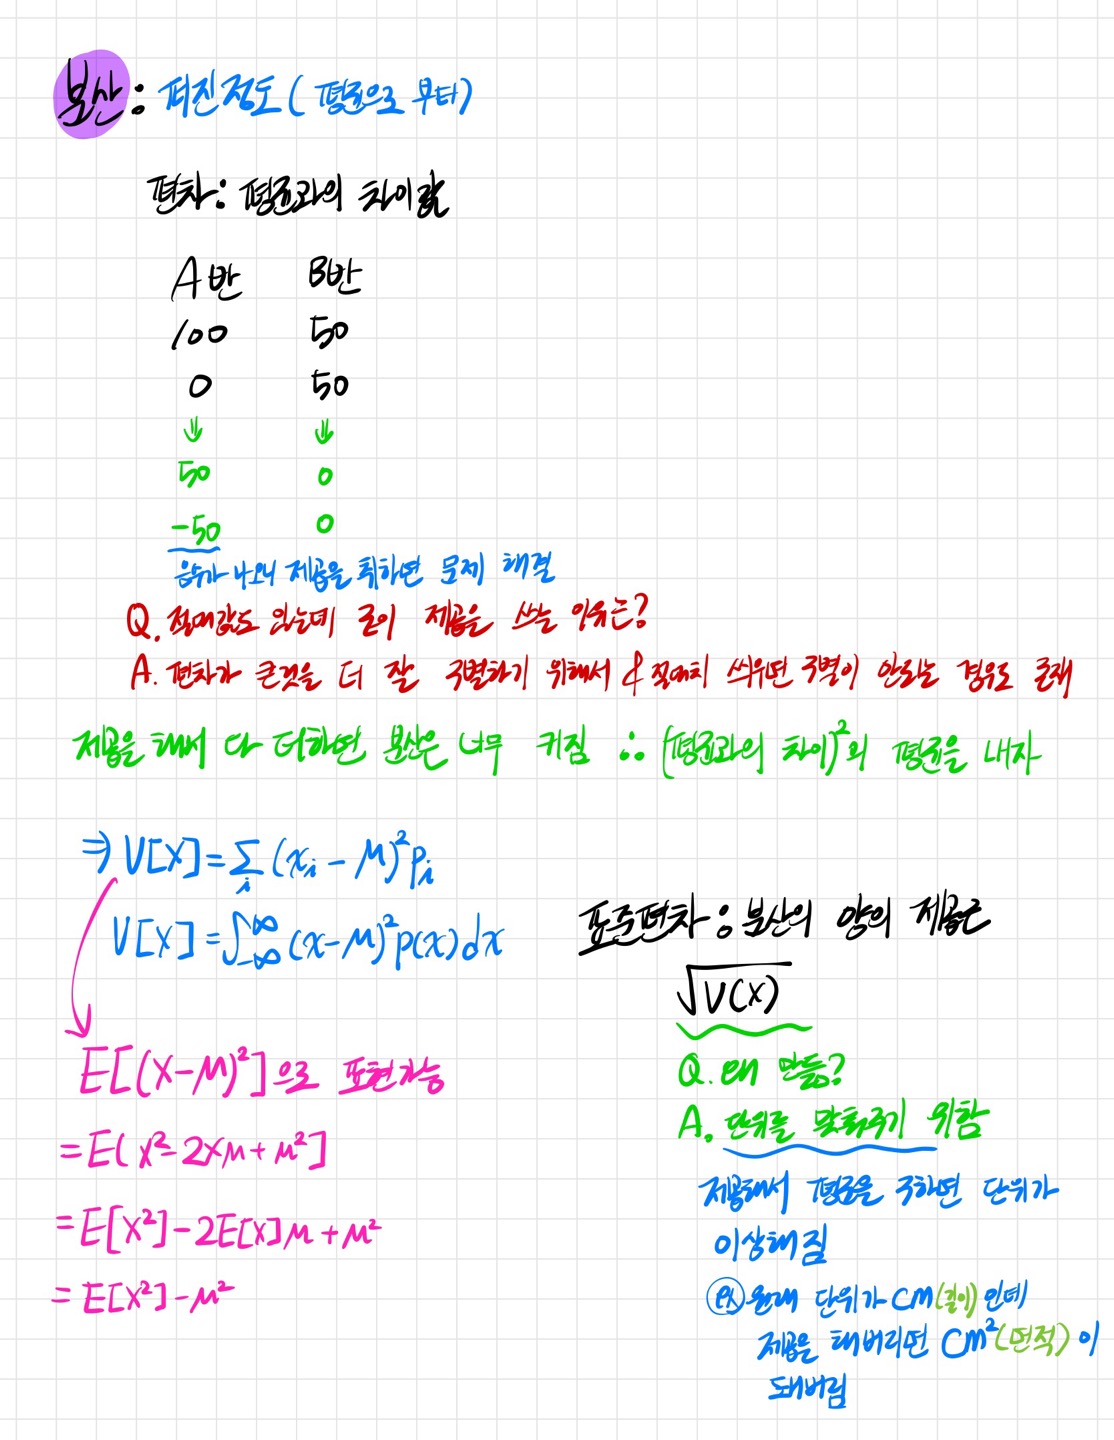 분산: 퍼진정도 (평균으로 부터)
편차: 평균과의 차이값
A반 B반
100 50
0 50
↓ ↓
50 0
-50 0
음수가 나오니 제곱을 취하면 문제 해결
Q. 절대값도 있는데 굳이 제곱을 쓰는 이유는?
A. 편차가 큰것을 더 잘 구별하기 위해서 & 절대치 씌우면 구별이 안되는 경우도 존재
제곱을 해서 다 더하면 분산은 너무 커짐 ∴ (평균과의 차이)²의 평균을 내자
⇒ V[X] = Σᵢ (xᵢ - μ)² pᵢ
V[X] = ∫_{-∞}^{∞} (x-μ)² p(x) dx
E[(X-μ)²]으로 표현가능
= E[X² - 2Xμ + μ²]
= E[X²] - 2E[X]μ + μ²
= E[X²] - μ²
표준편차: 분산의 양의 제곱근
√V(X)
Q. 왜 만듦?
A. 단위를 맞춰주기 위함
제곱해서 평균을 구하면 단위가
이상해짐
ex) 원래 단위가 cm(길이)인데
제곱을 해버리면 cm²(면적)이
돼버림